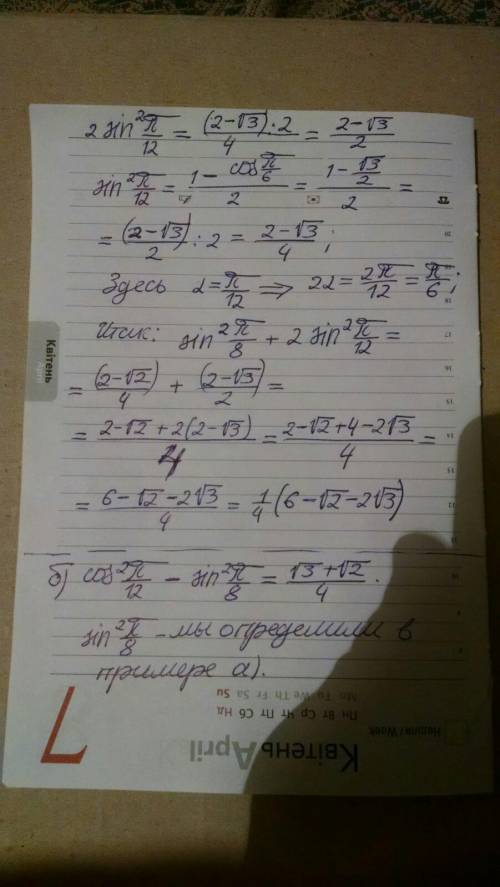 2 sin²π/12 = (2-√3)·2/4 = 2-√3/2
sin²π/12 = 1-cosπ/6/2 = 1-√3/2/2 =
= (2-√3)/2 : 2 = 2-√3/4;
Здесь α=π/12 ⇒ 2α=2π/12=π/6;
Итак: sin²π/8 + 2 sin²π/12 =
= (2-√2)/4 + (2-√3)/2 =
= 2-√2+2(2-√3)/4 = 2-√2+4-2√3/4 =
= 6-√2-2√3/4 = 1/4(6-√2-2√3)
б) cos²π/12 - sin²π/8 = √3+√2/4.
sin²π/8 - мы определили в
примере а).
Квітень
April
7
Квітень April
Пн Вт Ср Чт Пт Сб Нд
Mo Tu We Th Fr Sa Su
Неділя / Week